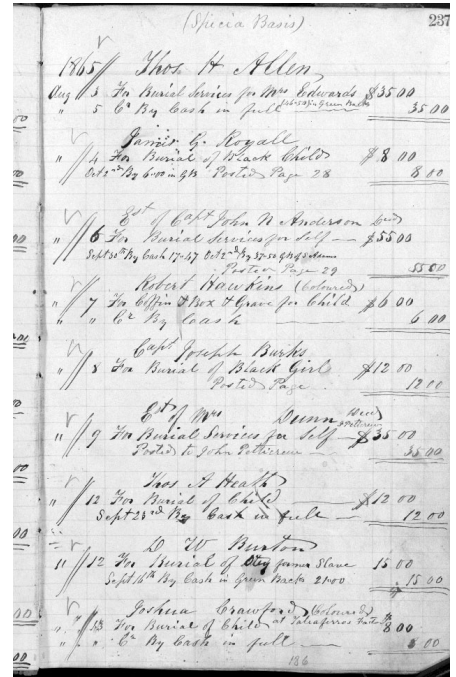 (Specia Basis)
237
1865 Thos H Allen
Aug 3 For Burial Services for Mrs Edwards $35 00
" 5 Cr By Cash in full in Green Backs 35 00
James G. Royall
" 4 For Burial of Black Child $8 00
Oct 2nd By 6-00 in GBs Posted Page 28 8 00
Est of Capt John N Anderson Decd
" 6 For Burial Services for Self — $55 00
Sept 30th By Cash 17-47 Oct 2nd By 37-50
Posted Page 29 55 00
Robert Hawkins (Coloured)
" 7 For Coffin & Box & Grave for Child $6 00
" " Cr By Cash — 6 00
Capt Joseph Burks
" 8 For Burial of Black Girl $12 00
Posted Page 12 00
Est of Mrs Dunn Decd
" 9 For Burial Services for Self — $35 00
Posted to John 35 00
Thos A Heath
" 12 For Burial of Child — $12 00
Sept 23rd By Cash in full — 12 00
D W Burton
" 12 For Burial of former Slave 15 00
Sept 16th By Cash in Green Backs 21-00 15 00
Joshua Crawford (Coloured)
" 13 For Burial of Child at Taliaferros 8 00
" " Cr By Cash in full — 8 00
186